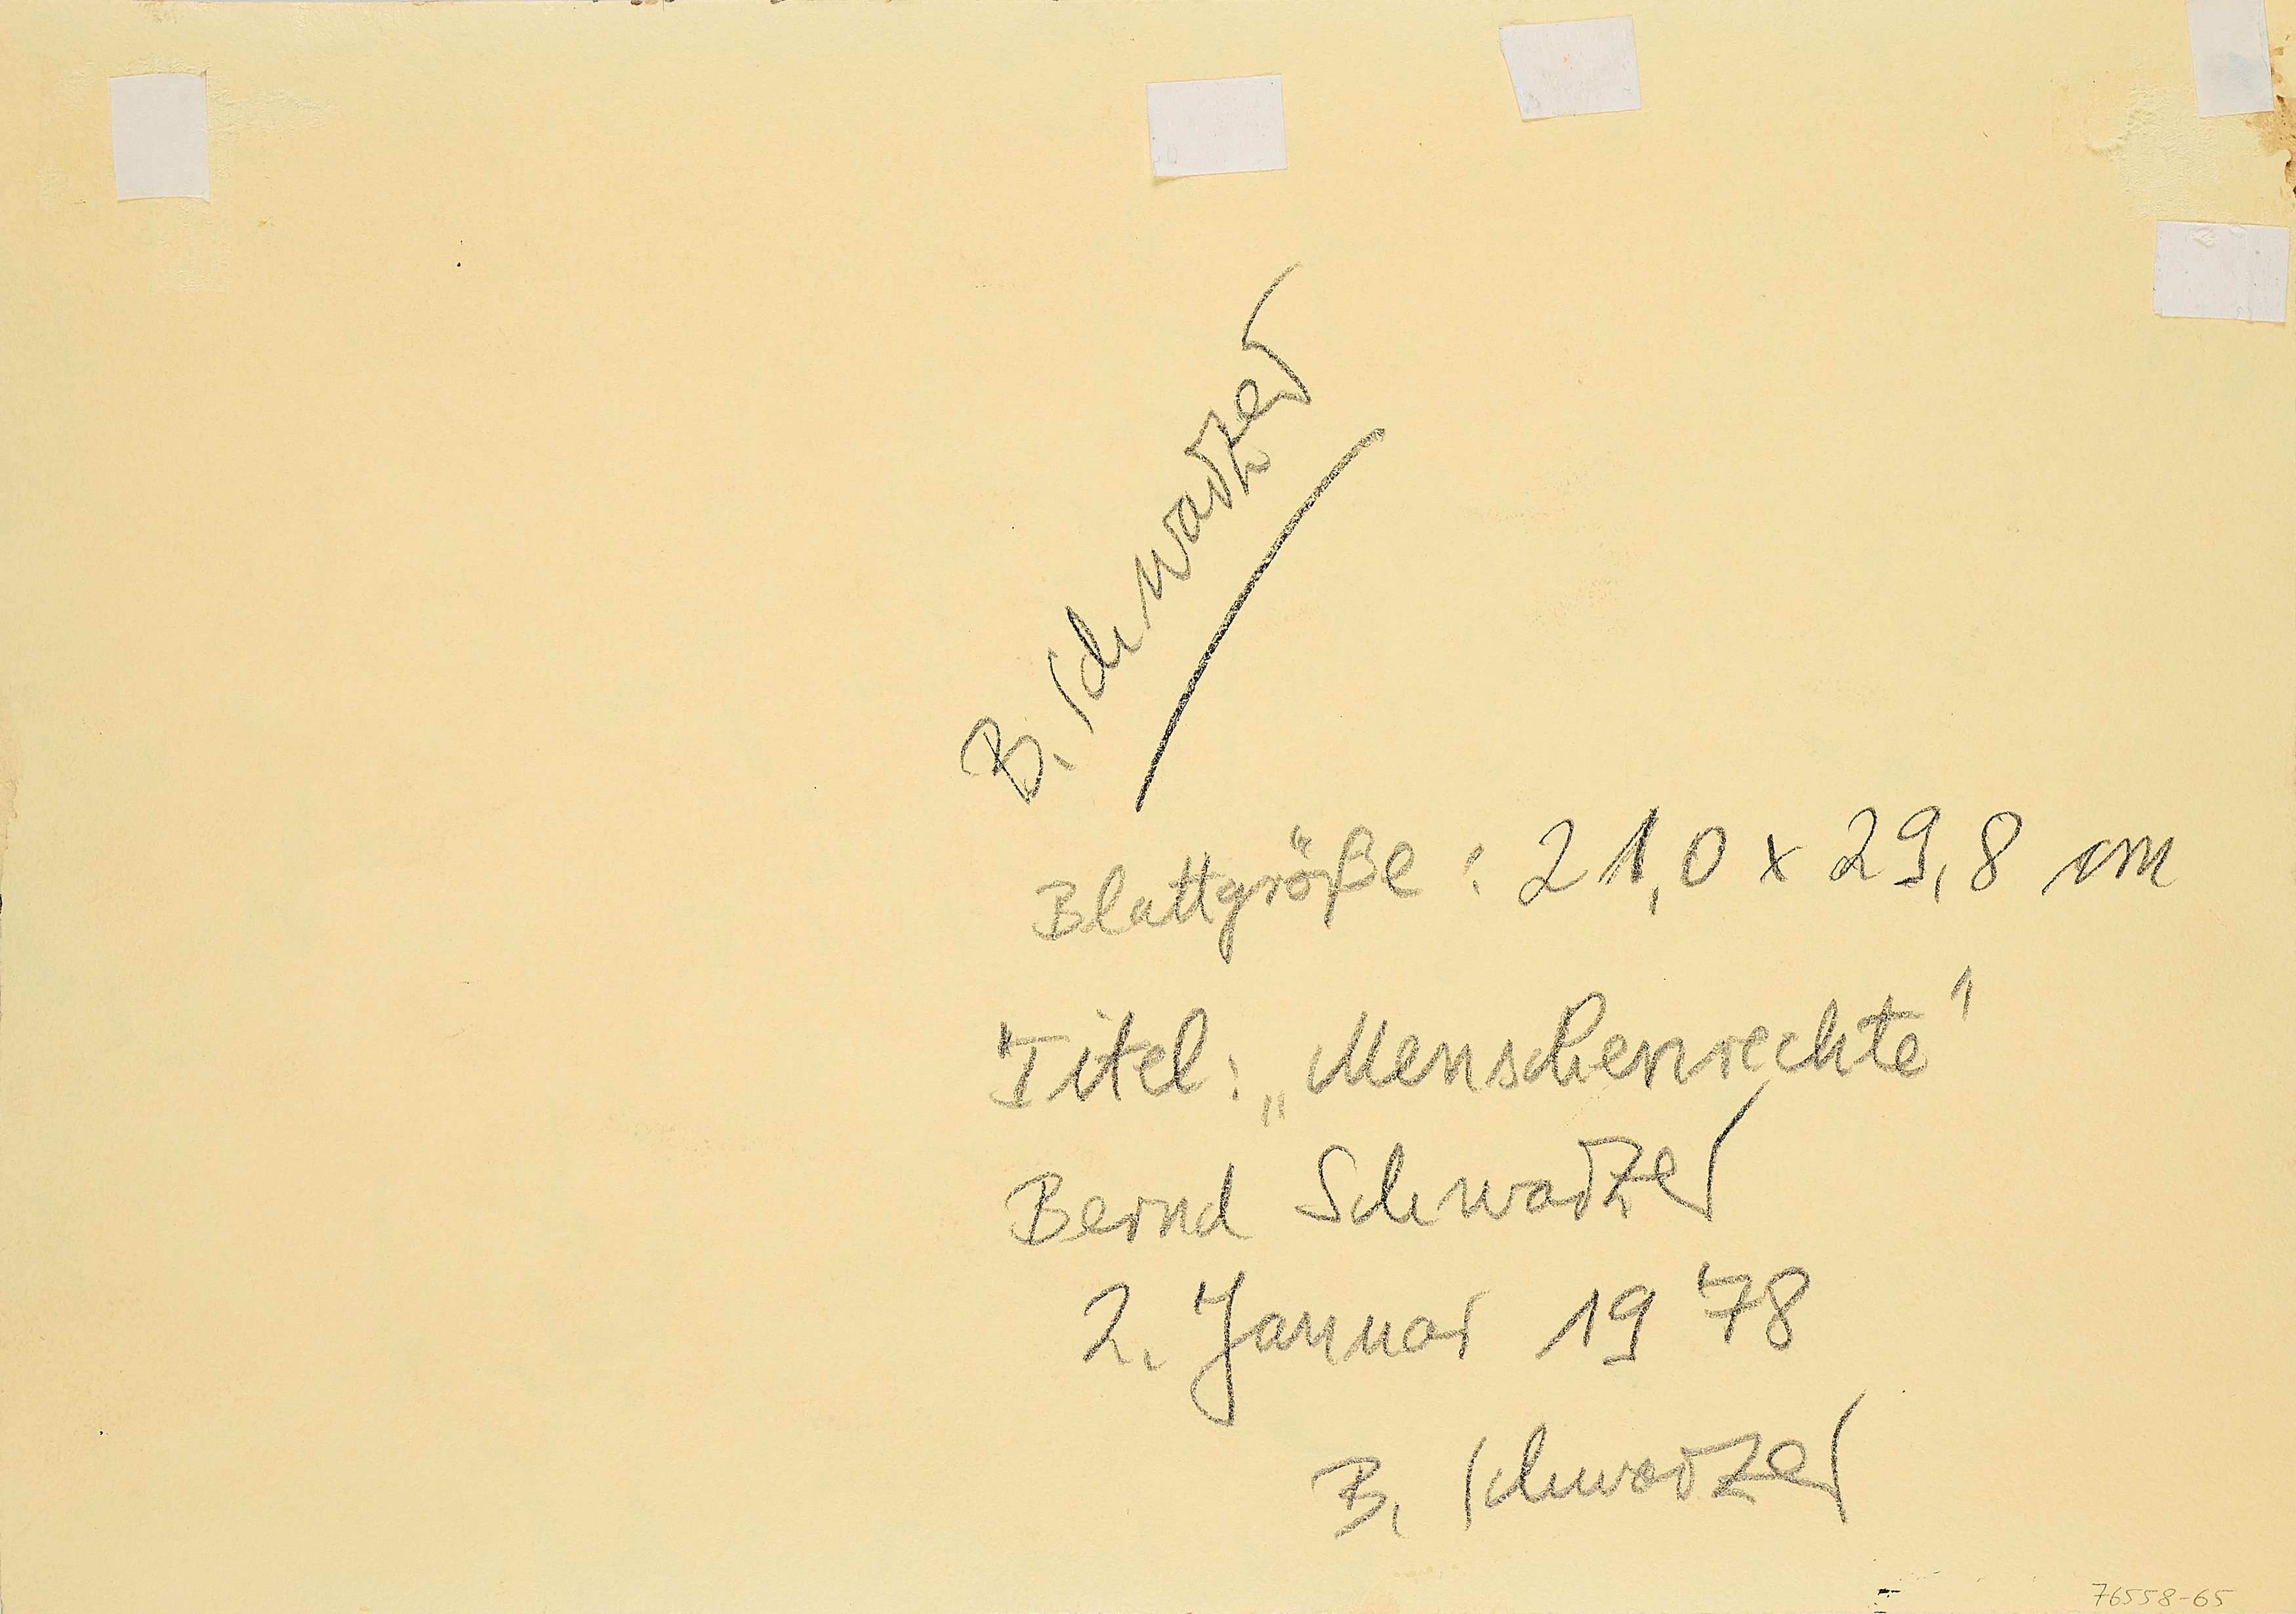 B. Schwarzer
Blattgröße : 21,0 x 29,8 cm
Titel: „Menschenrechte"
Bernd Schwarzer
2. Januar 1978
B. Schwarzer
76558-65